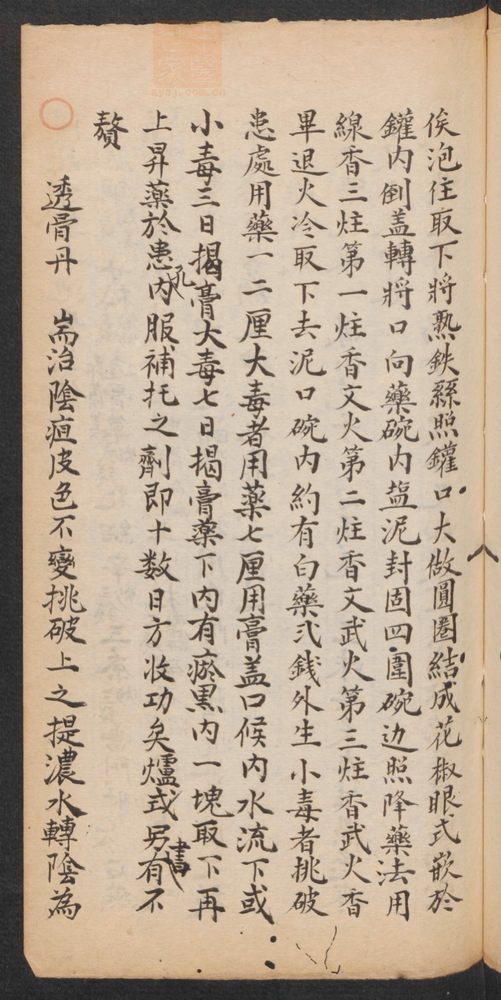 俟泡住取下將熟鉄絲照鑵口大做圓圈結成花椒眼式嵌於
鑵内倒盖轉將口向藥碗内塩泥封固四圍碗边照降藥法用
線香三炷第一炷香文火第二炷香文武火第三炷香武火香
畢退火冷取下去泥口碗内約有白藥弍銭外生小毒者挑破
患處用藥一二厘大毒者用藥七厘用膏盖口候内水流下或
小毒三日揭膏大毒七日揭膏藥下内有瘀黒内一塊取下再
上昇藥於患内服補托之劑即十数日方收功矣爐式另有書不
贅
透骨丹 耑治陰疽皮色不變挑破上之提濃水轉陰為